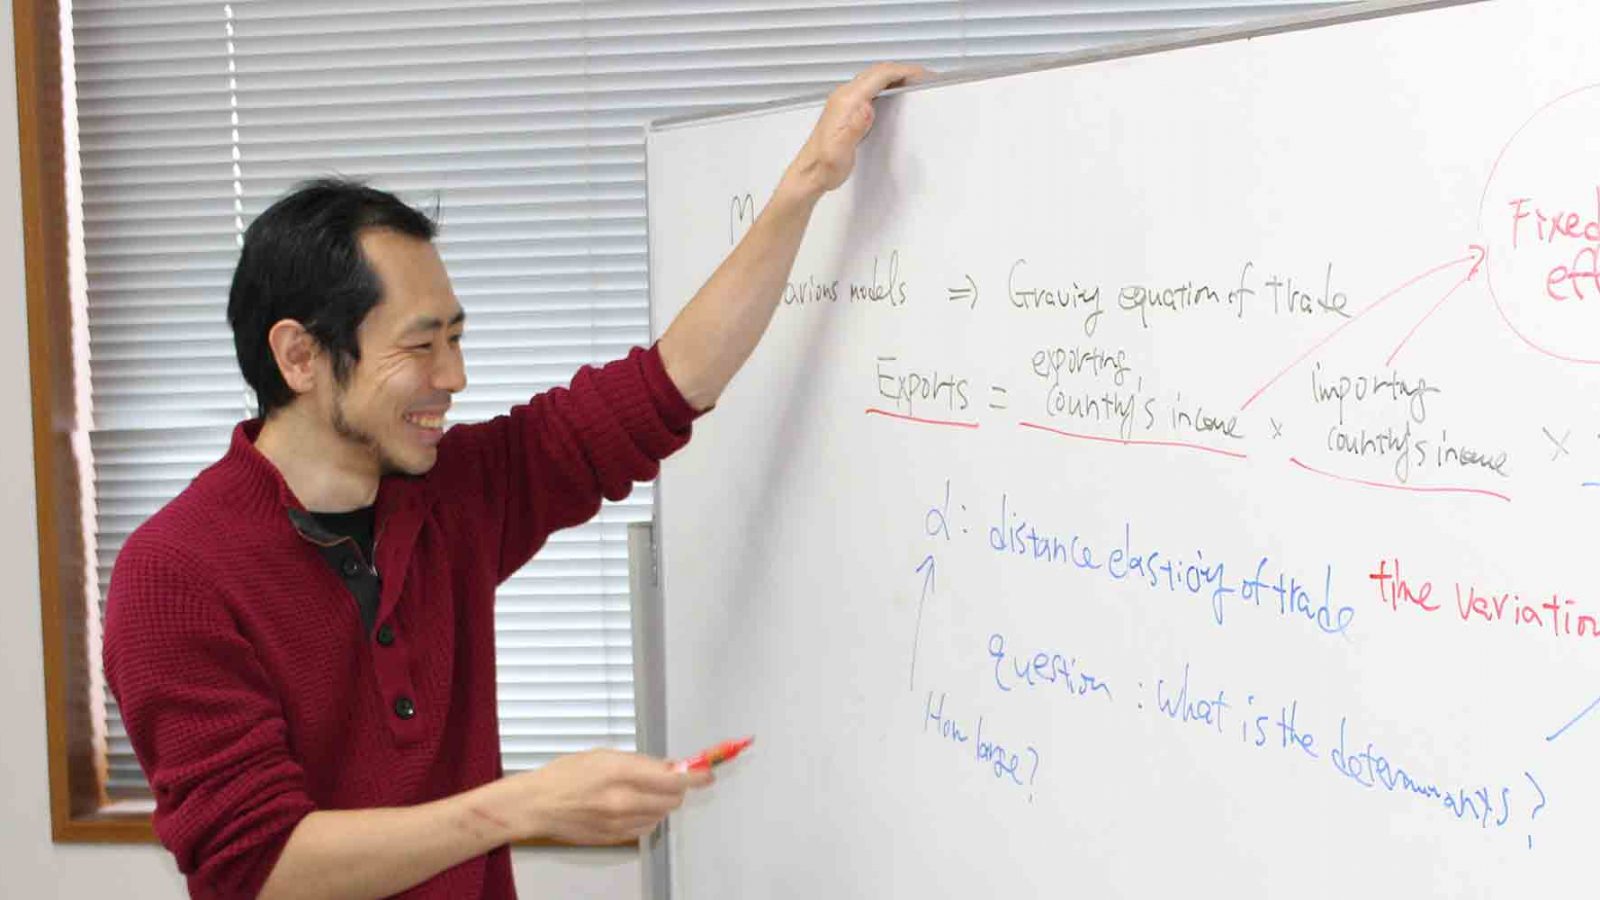 M
arious models ⇒ Gravity equation of trade
Fixed
eff
Exports = exporting country's income × importing country's income ×
α: distance elasticity of trade the variation
How large?
question: what is the determinants?